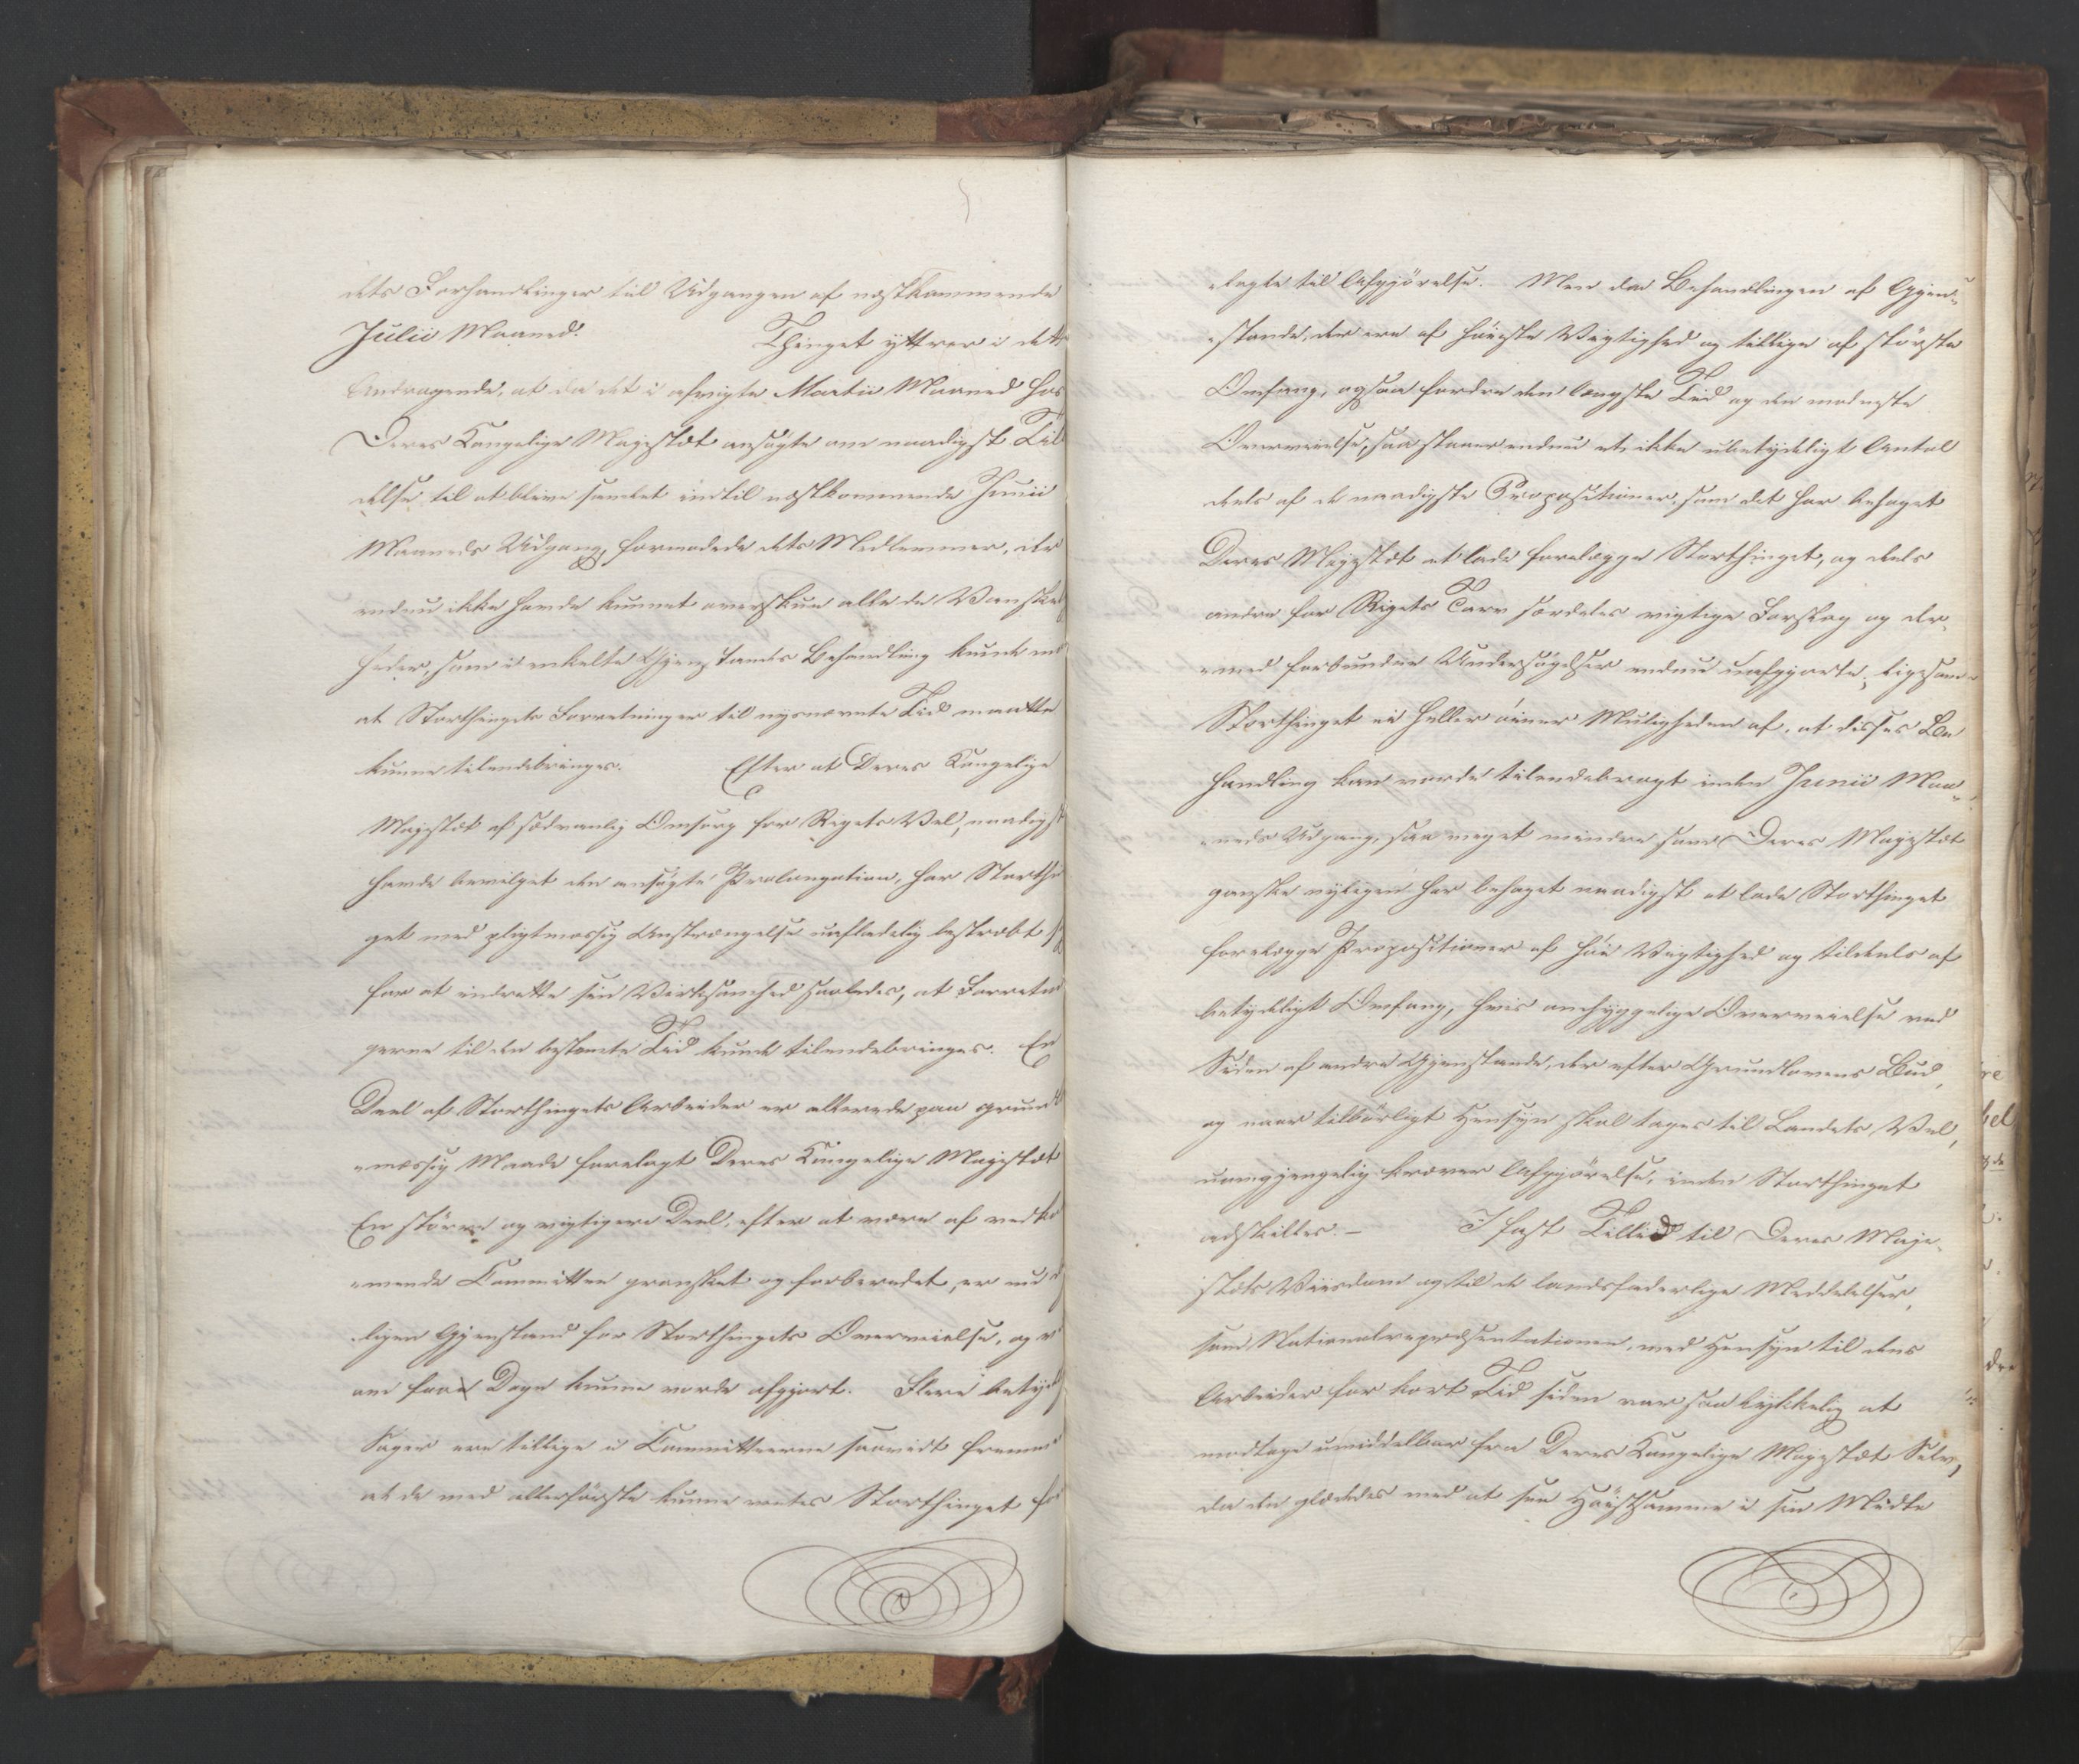 dets Forhandlinger til Udgangen af næstkommende
Julii Maaned. Thinget yttrer i dette
Andragende, at da det i afvigte Martii Maaned hos
Deres Kongelige Majestæt ansøgte om naadigst Til
delse til at blive samlet indtil næstkommende Junii
Maaneds Udgang, formodede dets Medlemmer, der
endnu ikke havde kunnet overskue alle de Vanskel
heder, som i enkelte Gjenstandes Behandling kunde
at Storthingets Forretninger til nysnævnte Tid maatte
kunne tilendebringes. Efter at Deres Kongelige
Majestæt af sædvanlig Omsorg for Rigets Vel, naadigst
havde bevilget den ansøgte Prolongation, har Storthi
get med pligtmæssig Anstrængelse uafladelig bestræbt
for at indrette sin Virksomhed saaledes, at Forretni
gerne til den bestemte Tid kunde tilendebringes. En
Deel af Storthingets Arbeider er allerede paa grund
mæssig Maade forelagt Deres Kongelige Majestæt
En større og vigtigere Deel, efter at være af vedko
mmende Committee gransket og forberedet, er nu
ligen Gjenstand for Storthingets Overveielse, og
om faae Dage kunne vorde afgjort. Flere betyde
Sager ere tillige i Committeerne saavidt fremme
at de med allerførste kunne ventes Storthinget
elagte til Afgjörelse. Men da Behandlingen af Gjen-
stande, der ere af høieste Vigtighed og tillige af største
Omfang, ogsaa fordre den længste Tid og den modneste
Overveielse, saa staaer endnu et ikke ubetydeligt Antal
deels af de naadigste Propositioner, som det har behaget
Deres Majestæt at lade forelægge Storthinget, og deels
andre for Rigets Tarv særdeles vigtige Forslag og der-
med forbundne Undersøgelser endnu uafgjorte, ligesom
Storthinget ei heller øiner Muligheden af, at disses Be
handling kan vorde tilendebragt inden Junii Maa-
neds Udgang, saa meget mindre som Deres Majestæt
ganske nyligen har behaget naadigst at lade Storthinget
forelægge Propositioner af høi Vigtighed og tildeels af
betydeligt Omfang, hvis omhyggelige Overveielse ved
Siden af andre Gjenstande, der efter Grundlovens Bud,
og naar tilbørligt Hensyn skal tages til Landets Vel,
uomgjængelig kræver Afgjörelse, inden Storthinget
adskilles. – I fast Tillid til Deres Maje-
stæts Viisdom og til de landsfaderlige Meddelelser,
som Nationalrepræsentationen, med Hensyn til dens
Arbeider for kort Tid siden var saa lykkelig at
modtage umiddelbar fra Deres Kongelige Majestæt Selv,
da den glædedes med at see Høistsamme i sin Midte